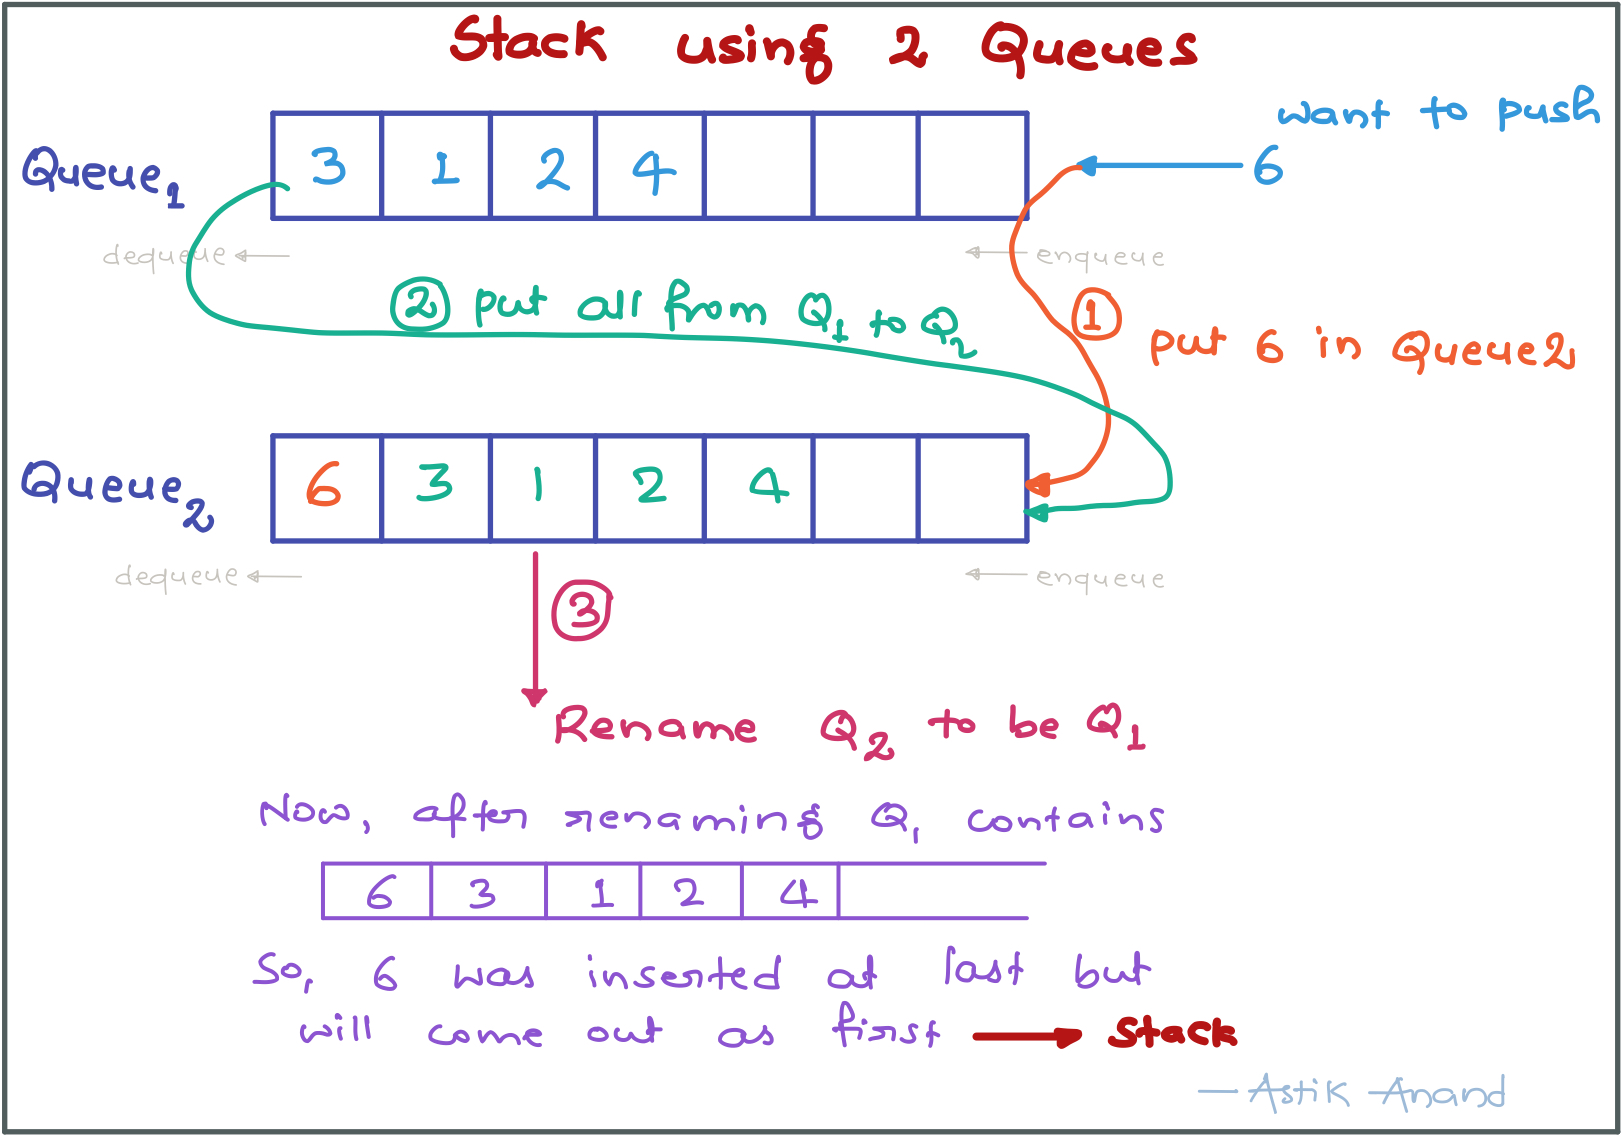 Stack using 2 Queues
want to push
Queue1 3 1 2 4 6
dequeue enqueue
2 put all from Q1 to Q2
1 put 6 in Queue2
Queue2 6 3 1 2 4
dequeue enqueue
3
Rename Q2 to be Q1
Now, after renaming Q1 contains
6 3 1 2 4
So, 6 was inserted at last but
will come out as first stack
— Astik Anand